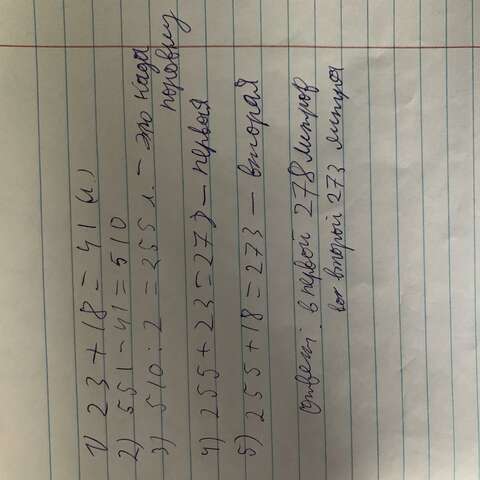 1) 23 + 18 = 41 (л.)
2) 551 - 41 = 510
3) 510 : 2 = 255 л. - это када
поровну
4) 255 + 23 = 278 - первая
5) 255 + 18 = 273 - вторая
Ответ: в первой 278 литров
во второй 273 литра